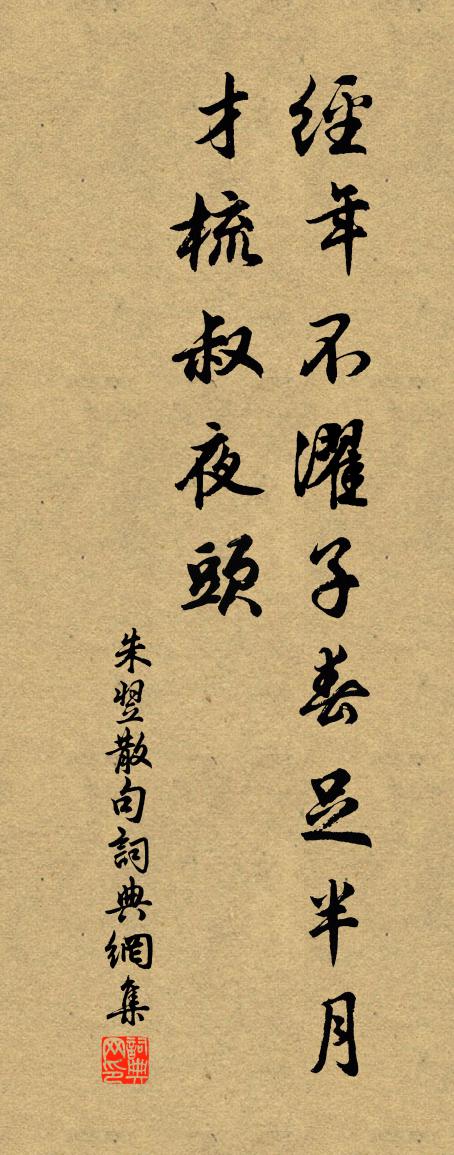 經年不濯子春足半月
才梳叔夜頭
朱翌散句詞典網集
詞典网印